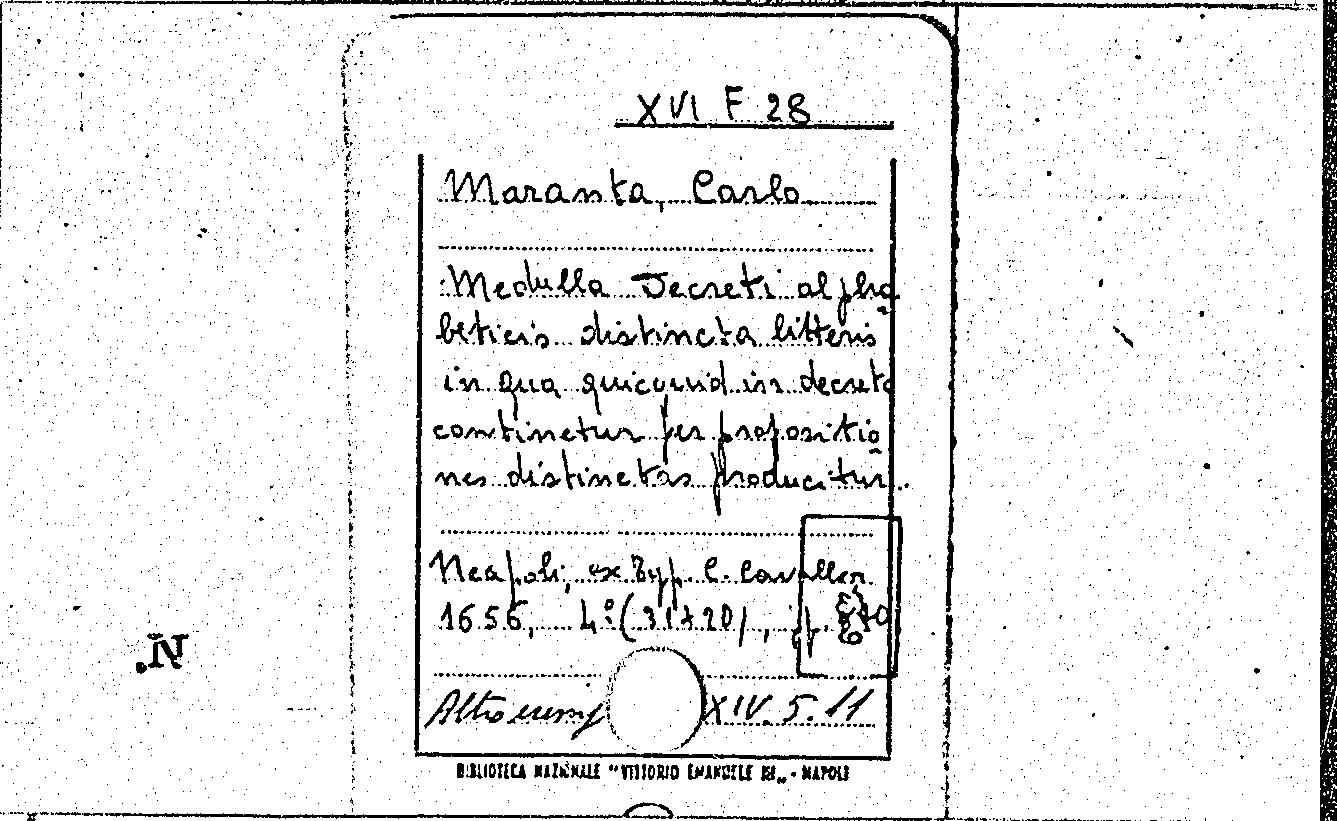 XVI F 28
Maranta, Carlo
Medulla Decreti alpha
beticis distincta litteris
in qua quicquid in decreto
continetur per propositio
nes distinctas producitur.
Neapoli, ex Typ. C. Cavaller.
1656, 4º (31x20), pp.
Altro esemp XIV. 5. 11
BIBLIOTECA NAZIONALE "VITTORIO EMANUELE III" - NAPOLI
N.